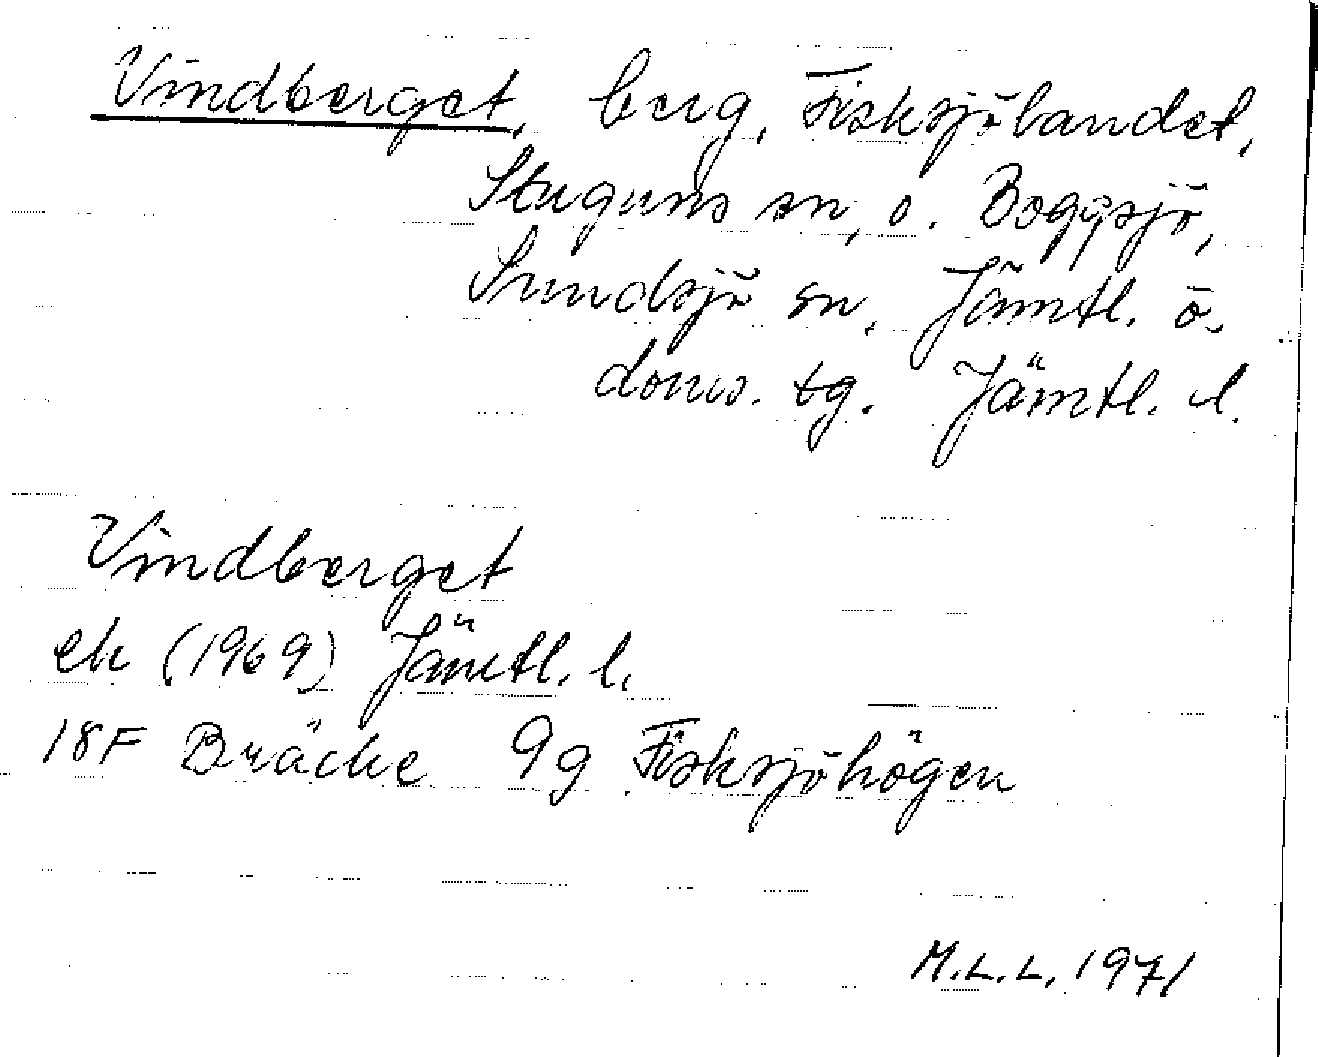 Vindberget, berg, Fisksjölandet,
Stuguns sn, o. Boggsjö,
Sundsjö sn, Jämtl. ö.
doms. tg. Jämtl. l.
Vindberget
ek (1969) Jämtl. l.
18F Bräcke 9g Fisksjöhögen
M.L.L. 1971